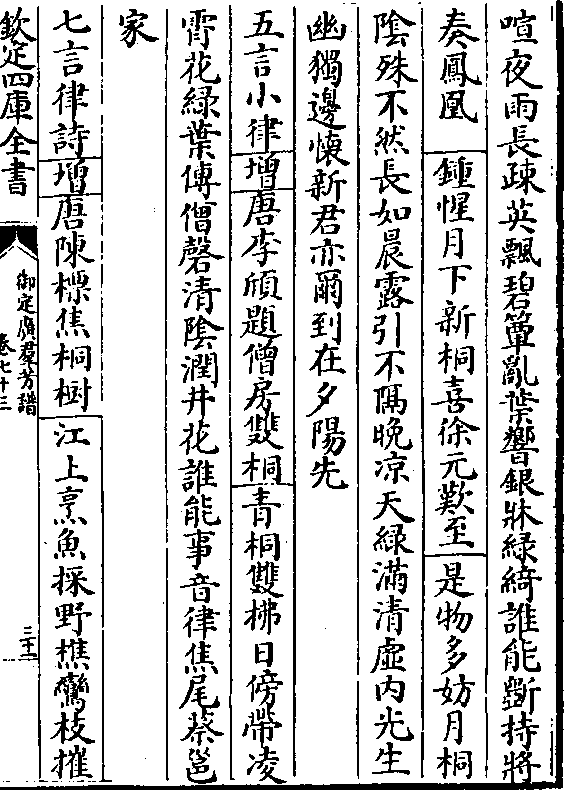 喧夜雨長疎英飄碧簟亂葉響銀牀緑綺誰能斵持將
奏鳳凰　鍾惺月下新桐喜徐元歎至　是物多妨月桐
陰殊不然長如晨露引不隔晚凉天緑滿清虛内光生
幽獨邊懐新君亦爾到在夕陽先
五言小律增唐李頎題僧房雙桐青桐雙拂日傍帶凌
霄花緑葉傳僧磬清陰潤井花誰能事音律焦尾蔡邕
家
七言律詩增唐陳標焦桐樹　江上烹魚採野樵鸞枝摧
欽定四庫全書
御定廣羣芳譜
卷七十三
三十二